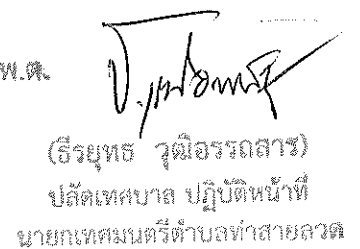 พ.ต.
(ธีรยุทธ วุฒิอรรถสาร)
ปลัดเทศบาล ปฏิบัติหน้าที่
นายกเทศมนตรีตำบลท่าสายลวด